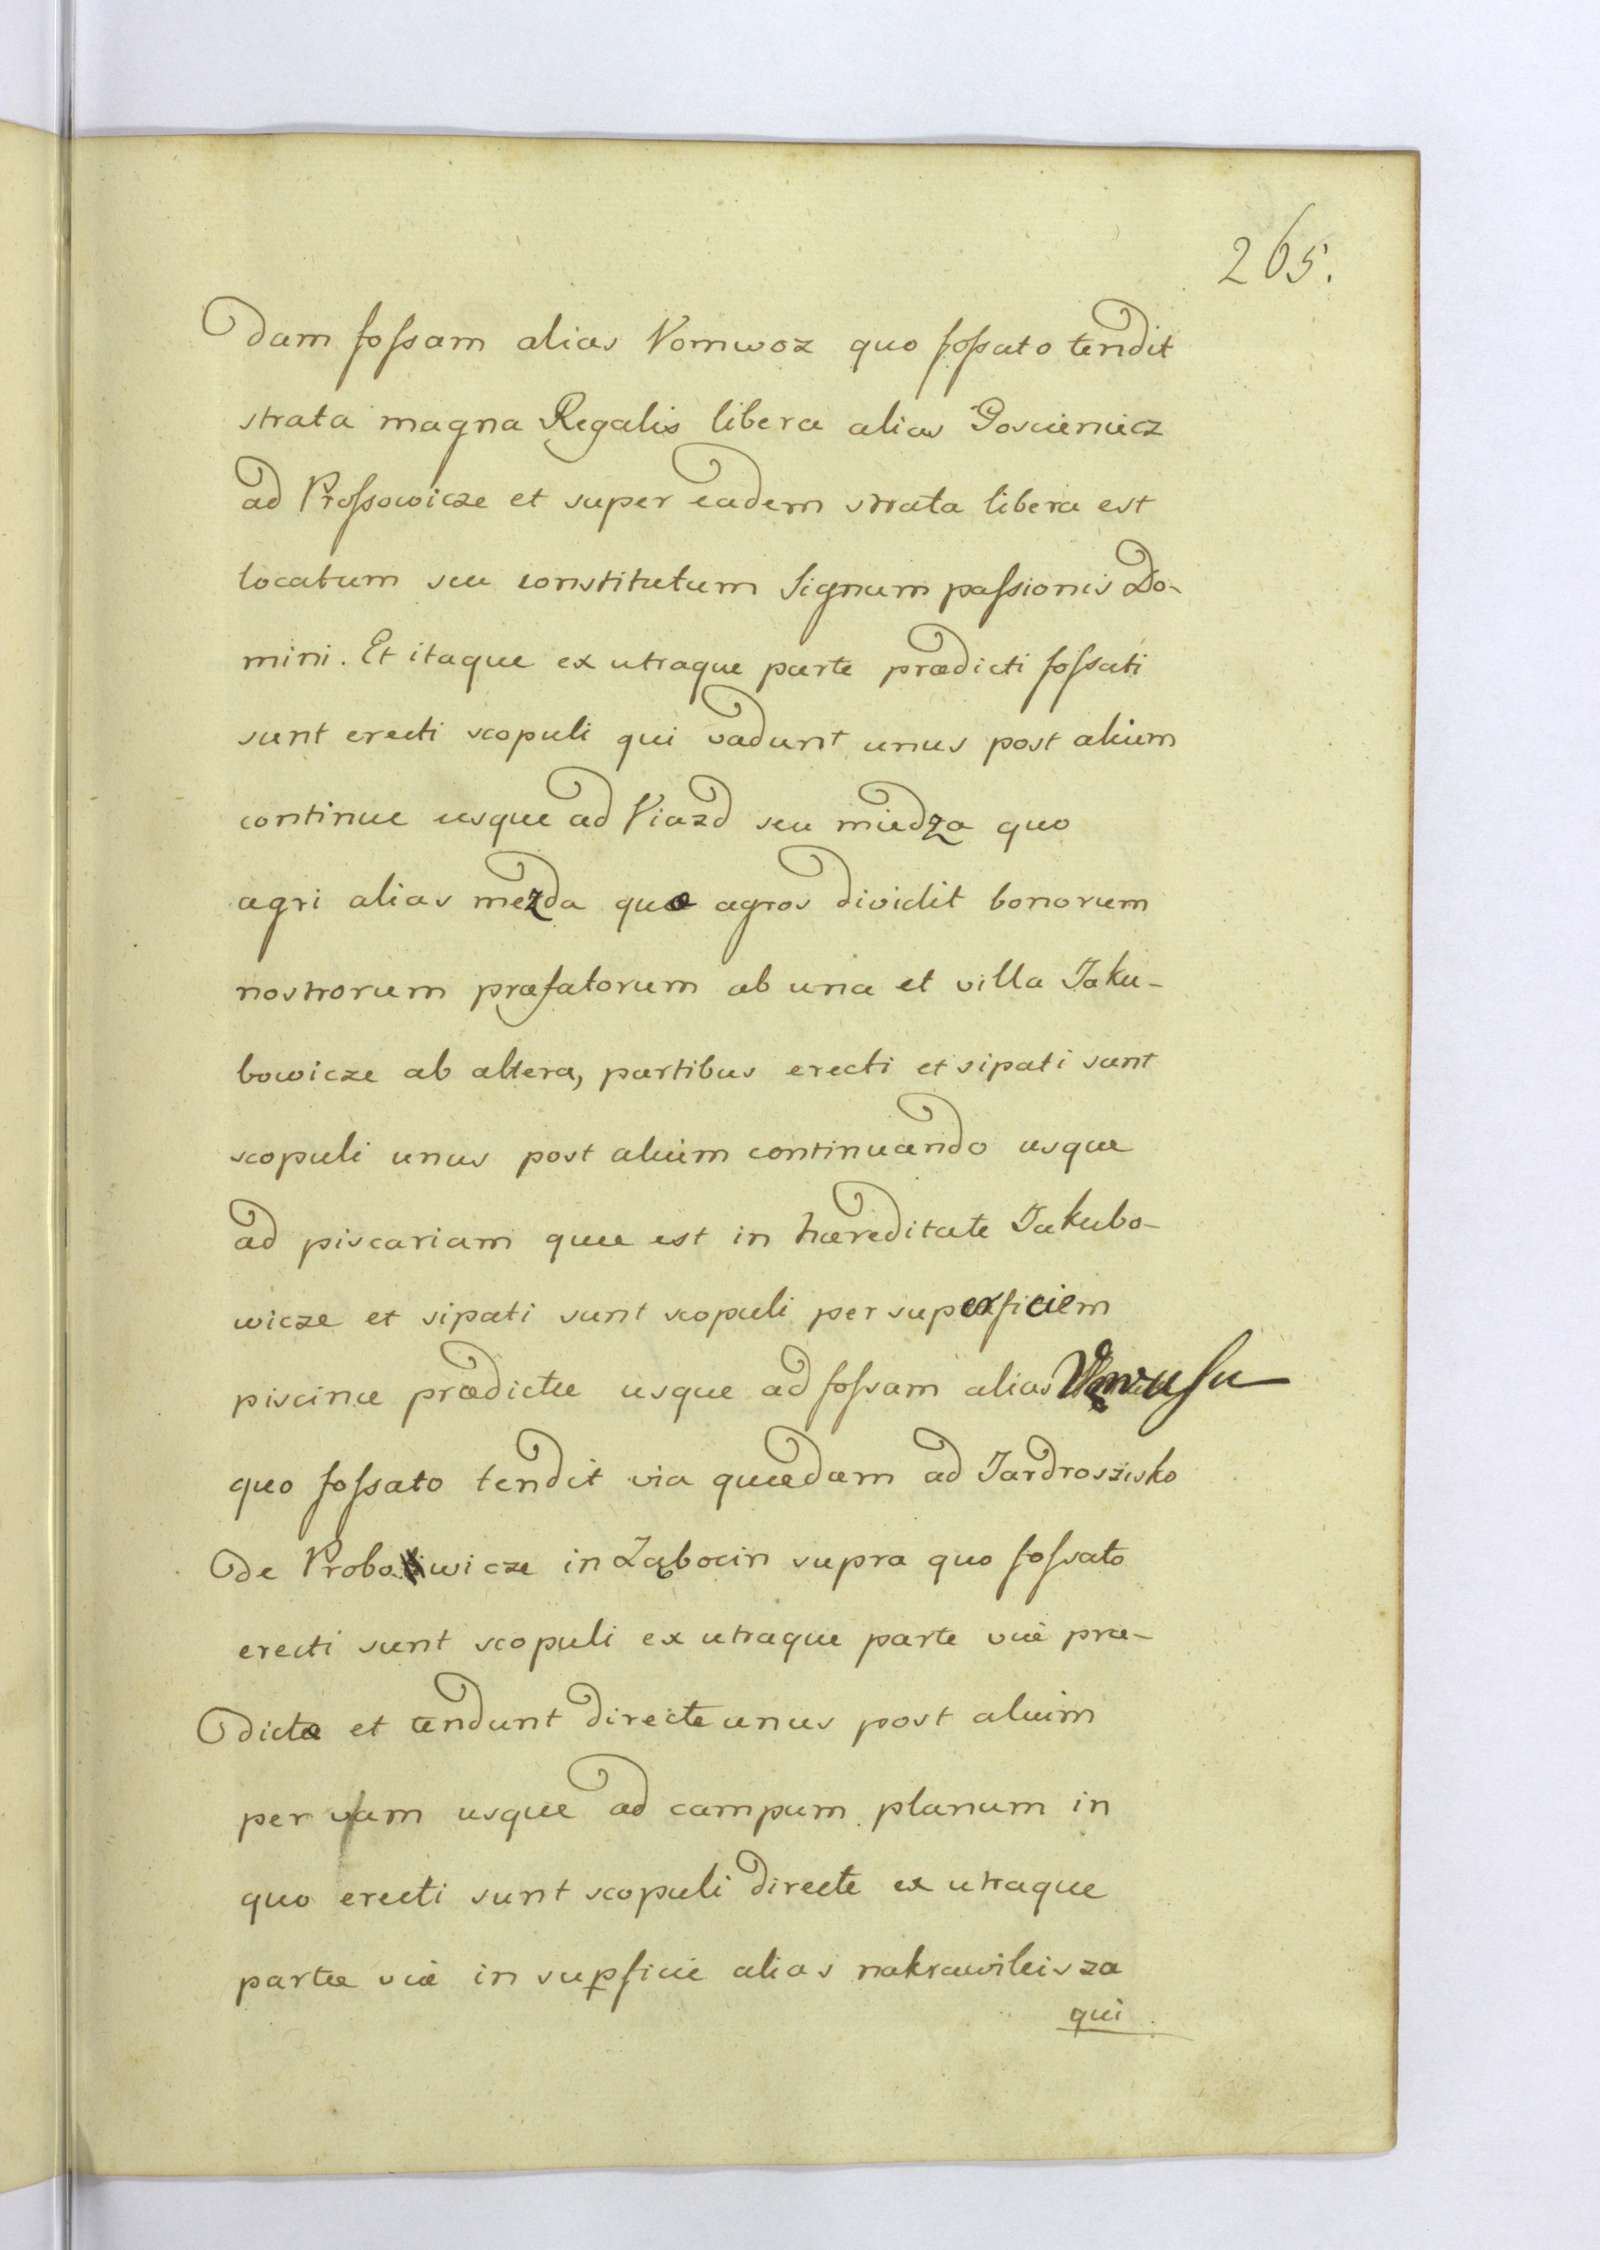 265.
dam fossam alias Vomwoz quo fossato tendit
strata magna Regalis libera alias Goscieniecz
ad Prossowicze et super eadem strata libera est
locatum seu constitutum signum passionis Do-
mini. Et itaque ex utraque parte prædicti fossati
sunt erecti scopuli qui vadunt unus post alium
continue usque ad Viazd seu miedza quo
agri alias mezda quæ agros dividit bonorum
nostrorum præfatorum ab una et villa Jaku-
bowicze ab altera, partibus erecti et sipati sunt
scopuli unus post alium continuando usque
ad piscariam quæ est in hæreditate Jakubo-
wicze et sipati sunt scopuli per superficiem
piscinæ prædictæ usque ad fossam alias
quo fossato tendit via quædam ad Jardroszisko
de in Ząbocin supra quo fossato
erecti sunt scopuli ex utraque parte viæ præ-
dictæ et tendunt directe unus post alium
per viam usque ad campum planum in
quo erecti sunt scopuli directe ex utraque
parte viæ in supficie alias nakrawileisza
qui